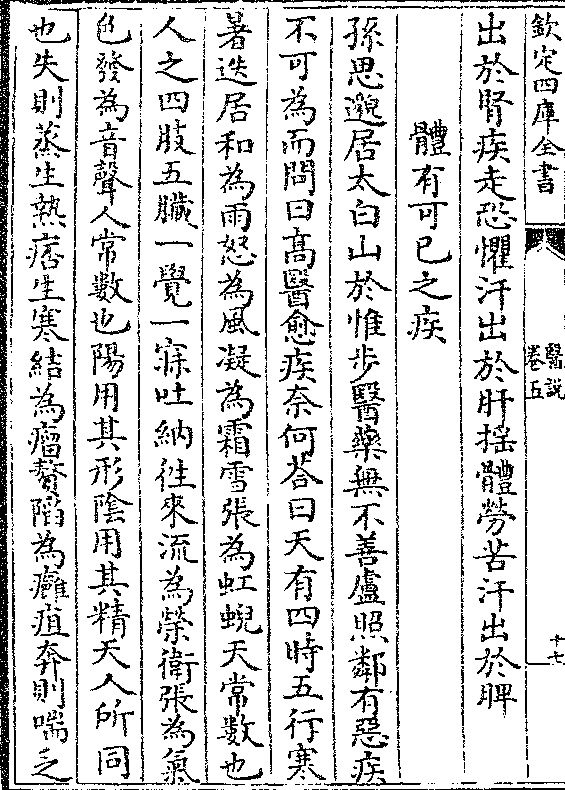 欽定四庫全書
醫說
卷五
十七
出於腎疾走恐懼汗出於肝揺體勞苦汗出於脾
體有可已之疾
孫思邈居太白山於惟步醫藥無不善盧照鄰有惡疾
不可為而問曰髙醫愈疾奈何荅曰天有四時五行寒
暑迭居和為雨怒為風凝為霜雪張為虹蜺天常數也
人之四肢五臟一覺一寐吐納徃來流為榮衛張為氣
色發為音聲人常數也陽用其形陰用其精天人所同
也失則蒸生熱痞生寒結為瘤贅陷為癰疽奔則喘乏